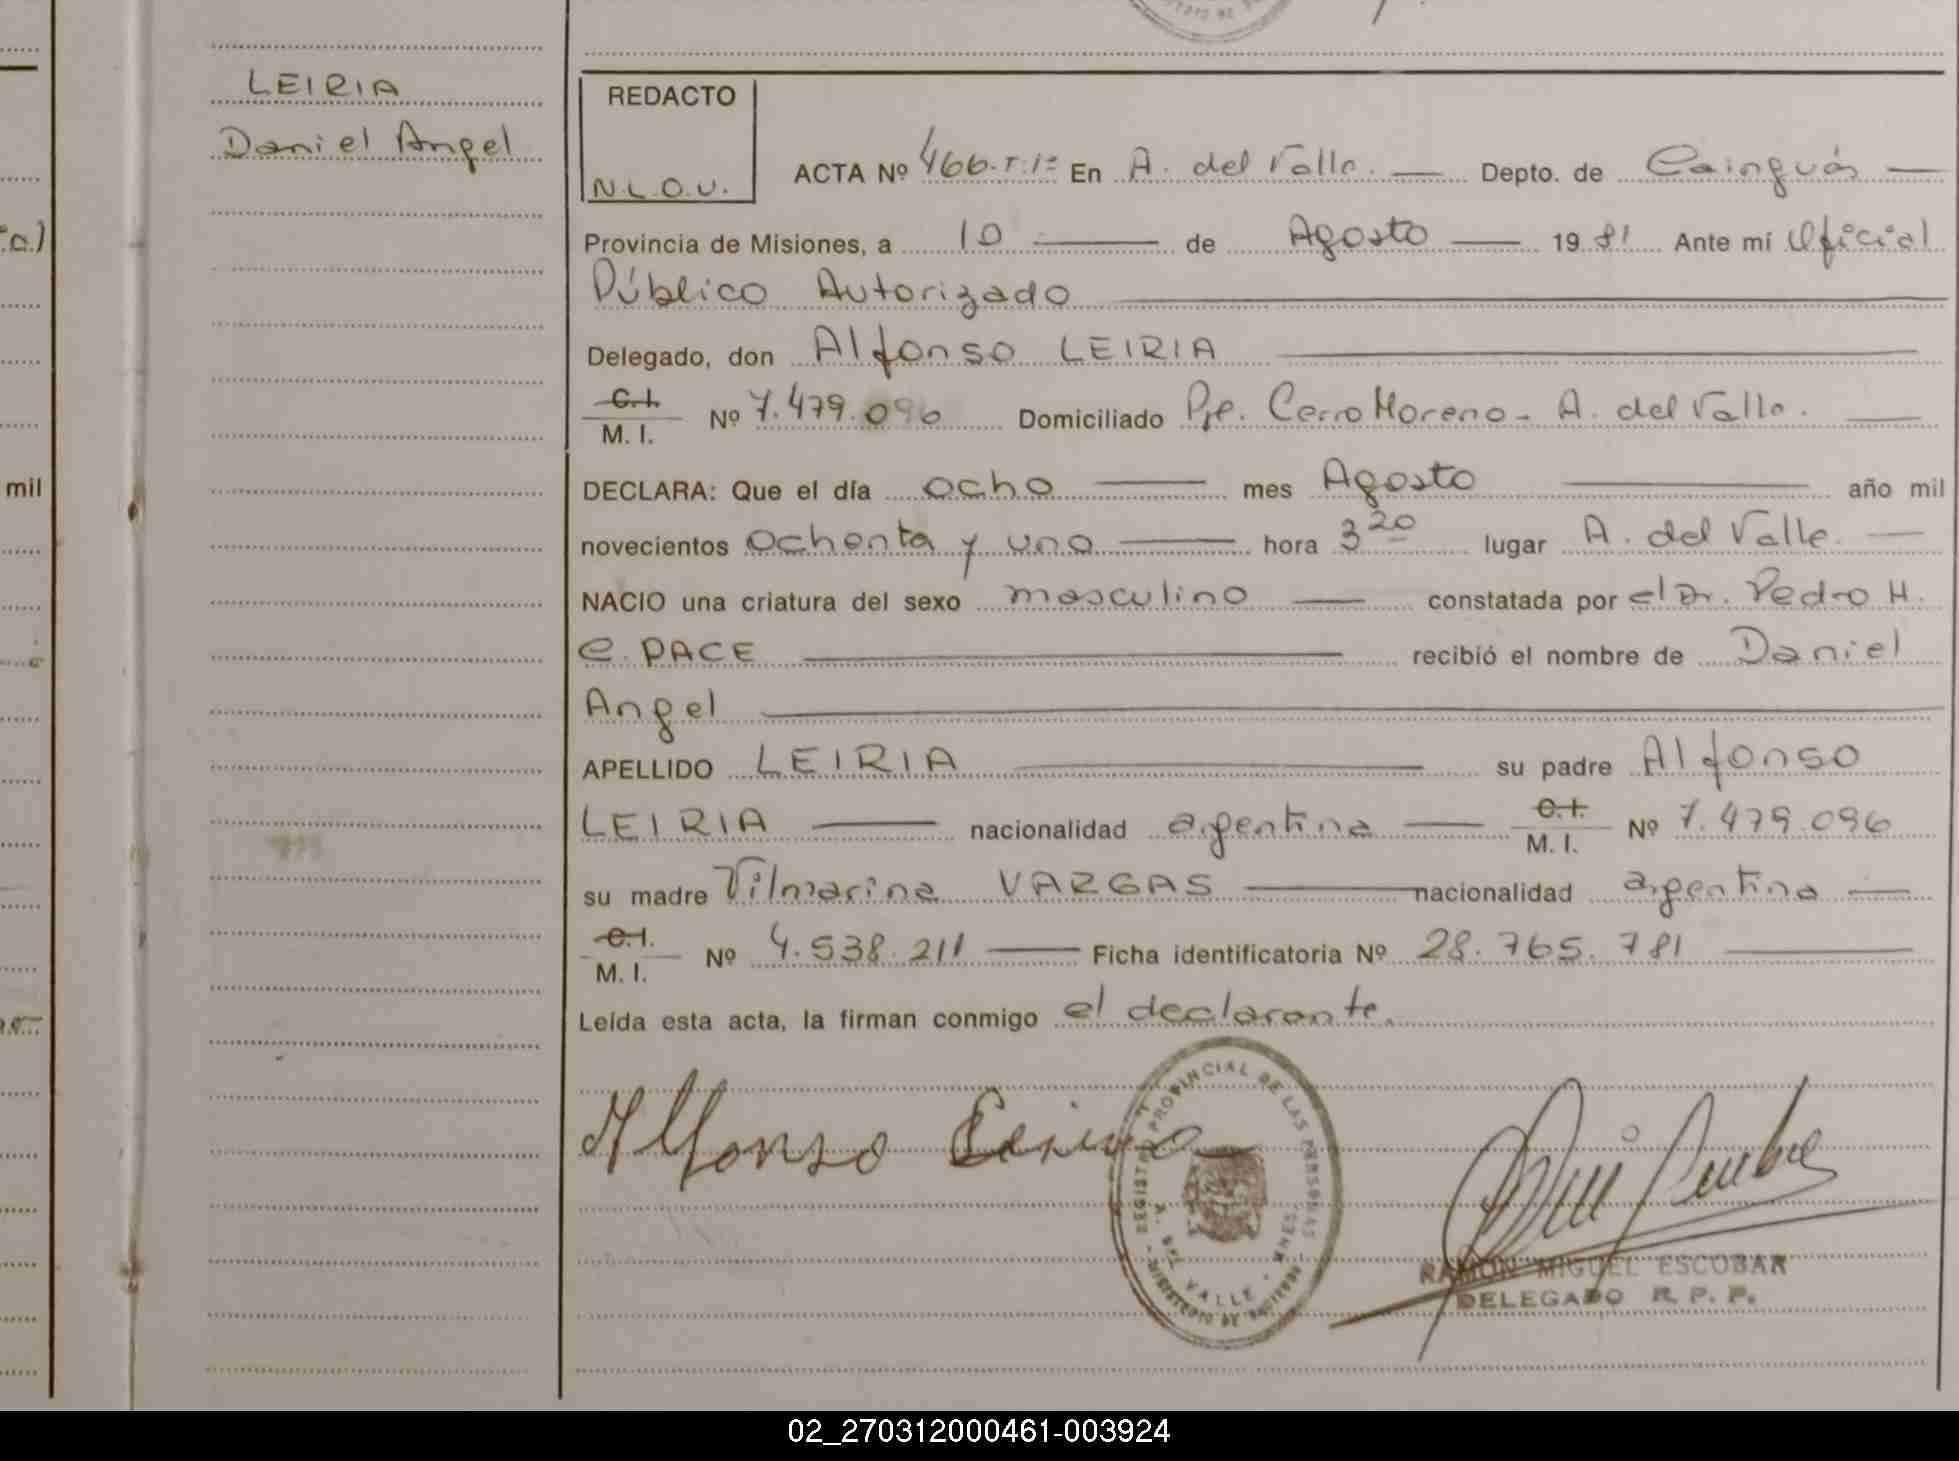 LEIRIA
Daniel Angel
REDACTO
N.L.O.V.
ACTA Nº 466-T:1º En A. del Valle. Depto. de Cainguás
Provincia de Misiones, a 10 de Agosto 1981 Ante mí Oficial
Público Autorizado
Delegado, don Alfonso LEIRIA
C.I. M. I. Nº 7.479.096 Domiciliado Pje. Cerro Moreno - A. del Valle.
DECLARA: Que el día ocho mes Agosto año mil
novecientos ochenta y uno hora 3 20 lugar A. del Valle.
NACIO una criatura del sexo masculino constatada por el Dr. Pedro H.
C. PACE recibió el nombre de Daniel
Angel
APELLIDO LEIRIA su padre Alfonso
LEIRIA nacionalidad argentina C.I. M. I. Nº 7.479.096
su madre Vilmarina VARGAS nacionalidad argentina
C.I. M. I. Nº 4.538.211 Ficha identificatoria Nº 28.765.781
Leída esta acta, la firman conmigo el declarante.
Alfonso Leiria
REGISTRO PROVINCIAL DE LAS PERSONAS
A. DEL VALLE - MNES.
RAMON MIGUEL ESCOBAR
DELEGADO R. P. P.
mil
02_270312000461-003924